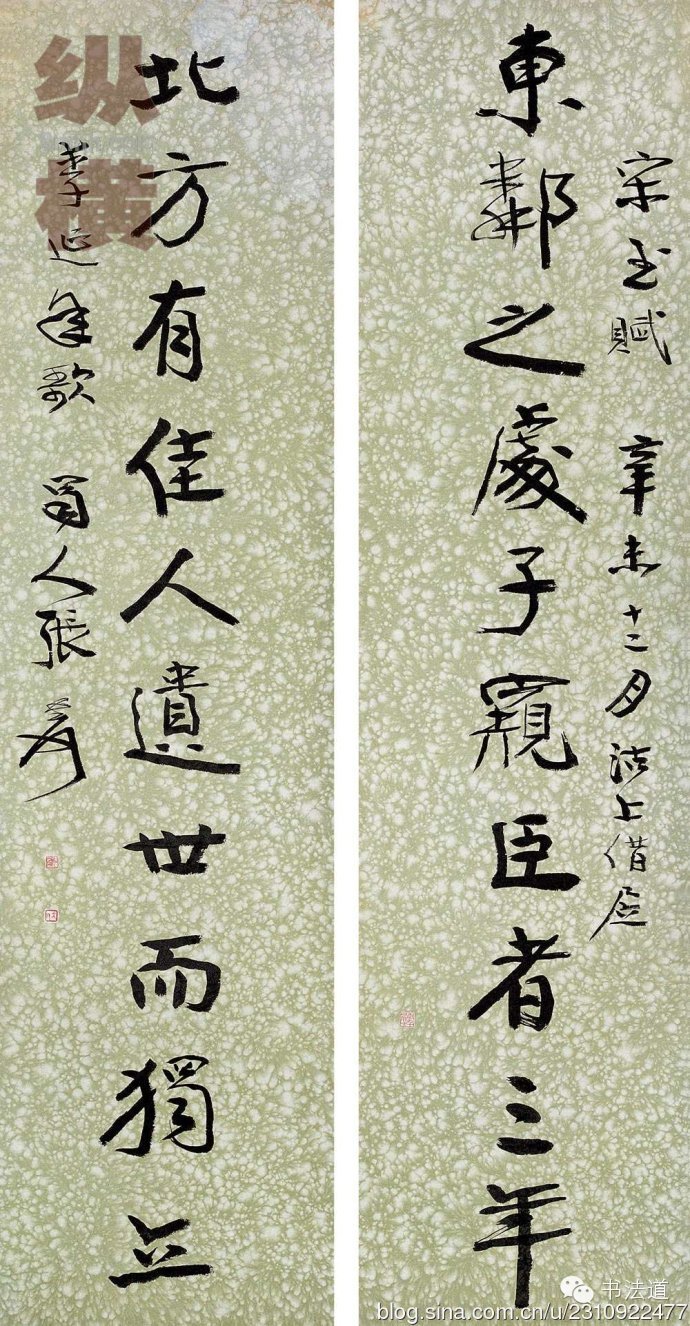 東鄰之處子窺臣者三年
宋玉賦 辛未十二月沽上借
北方有佳人遺世而獨立
李延年歌 蜀人張爰
纵横
书法道
blog.sina.com.cn/u/2310922477